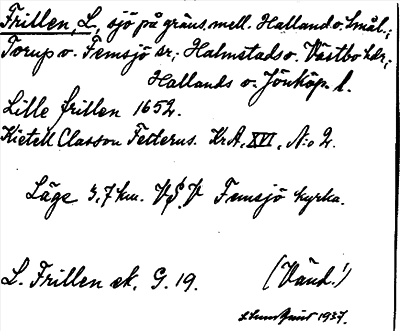 Frillen, L., sjö på gräns. mell. Halland o. Smål.;
Torup o. Femsjö sr; Halmstads o. Västbo hdr;
Hallands o. Jönköp. l.
Lille frillen 1652.
Kietell Classon Felterus. Kr.A. XVI, N:o 2.
Läge 3,7 km. V.S.V Femsjö kyrka.
L. Frillen ek. G. 19. (Vänd!)
1937.